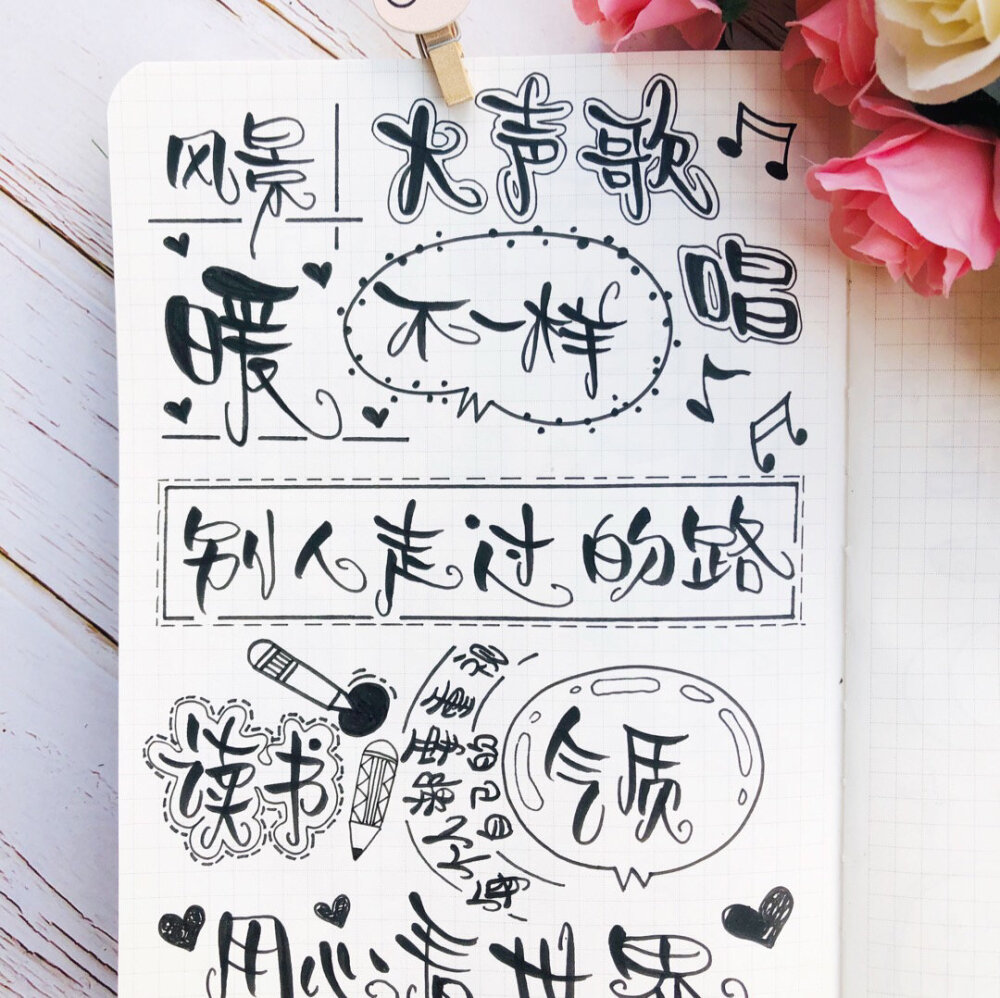 风景
大声歌
唱
暖
不一样
别人走过的路
读书
气质
用心看世界